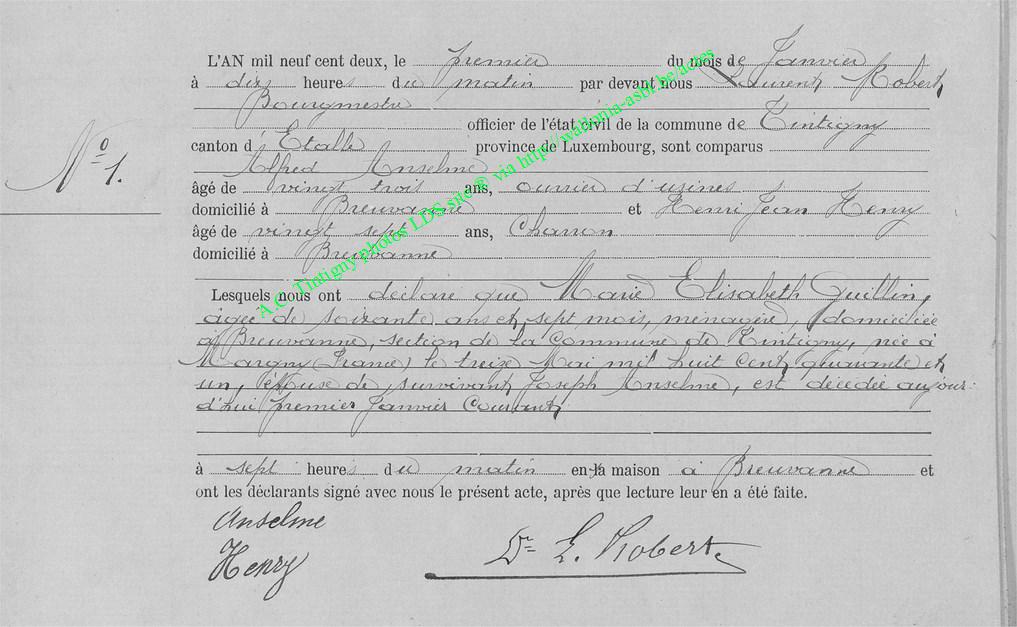 L'AN mil neuf cent deux, le premier du mois de Janvier
à dix heures du matin par devant nous Laurent Robert
Bourgmestre
officier de l'état civil de la commune de Tintigny
canton d'Etalle province de Luxembourg, sont comparus
N° 1.
Alfred Anselme
âgé de vingt trois ans, ouvrier d'usines
domicilié à Breuvanne et Henri Jean Henry
âgé de vingt sept ans, Charron
domicilié à Breuvanne
Lesquels nous ont déclaré que Marie Elisabeth Guillin,
âgée de soixante ans et sept mois, ménagère, domiciliée
à Breuvanne, section de la Commune de Tintigny, née à
Margny (France) le treize Mai mil huit cent quarante et
un, épouse de, survivant Joseph Anselme, est décédée aujour-
d'hui premier Janvier Courant
à sept heures du matin en la maison à Breuvanne et
ont les déclarants signé avec nous le présent acte, après que lecture leur en a été faite.
Anselme
Henry
Dr L. Robert
A.C. Tintigny photos LDS site® via http://wallonia-asbl.be/actes